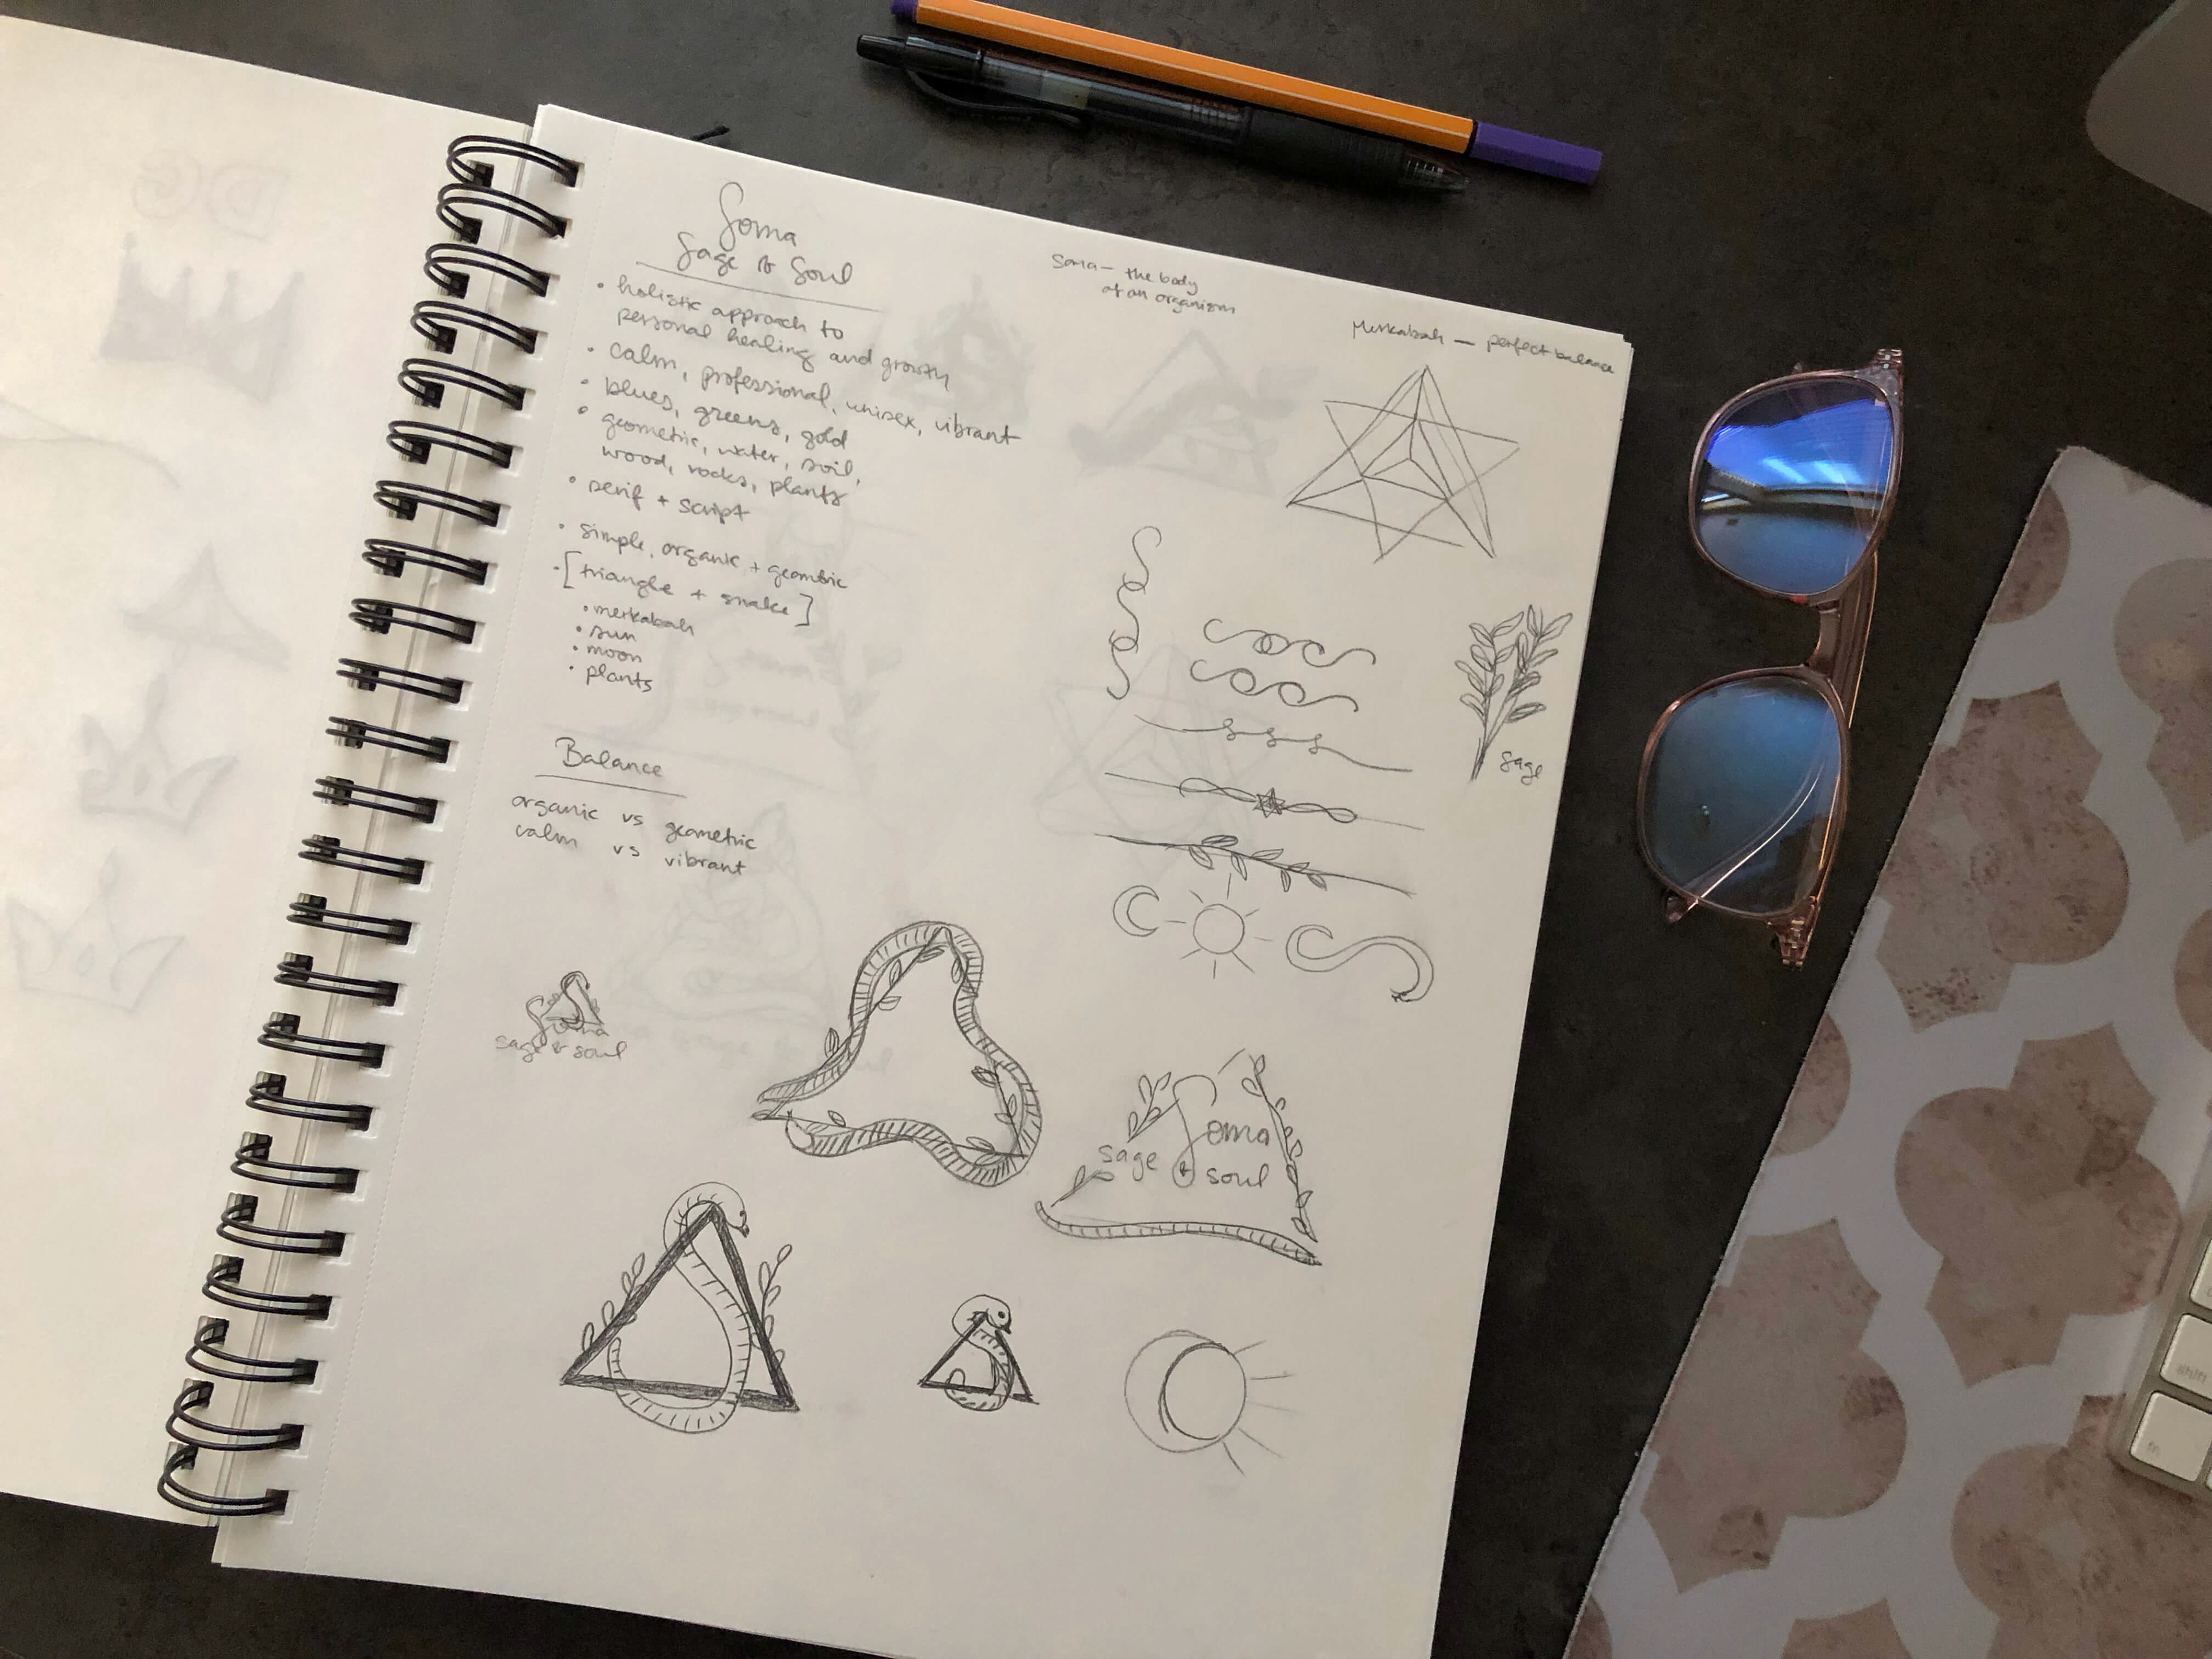 Soma
Sage & Soul
• holistic approach to
personal healing and growth
• calm, professional, unisex, vibrant
• blues, greens, gold
• geometric, water, soil,
wood, rocks, plants
• serif + script
• simple, organic + geombric
• [triangle + snake]
• merkabah
• sun
• moon
• plants
Soma — the body
of an organism
Merkabah — perfect balance
sage
Balance
organic vs geometric
calm vs vibrant
Soma
sage & soul
Soma
sage & soul
DG
fn